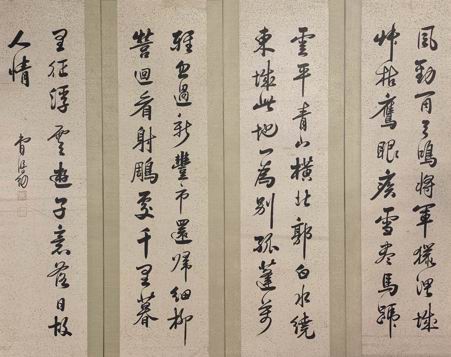 風勁角弓鳴將軍獵渭城
艸枯鷹眼疾雪盡馬蹄
雲平青山橫北郭白水繞
東城此地一為別孤蓬萬
輕忽過新豐市還歸細柳
營迴看射鵰處千里暮
里征浮雲遊子意落日故
人情